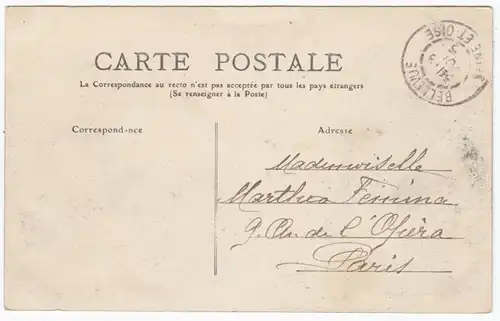 CARTE POSTALE
La Correspondance au recto n'est pas acceptée par tous les pays étrangers
(Se renseigner à la Poste)
Correspondance
Adresse
BELLEVUE
SEINE ET OISE
Mademoiselle
Martha Femina
9. Av. de l'Opéra
Paris